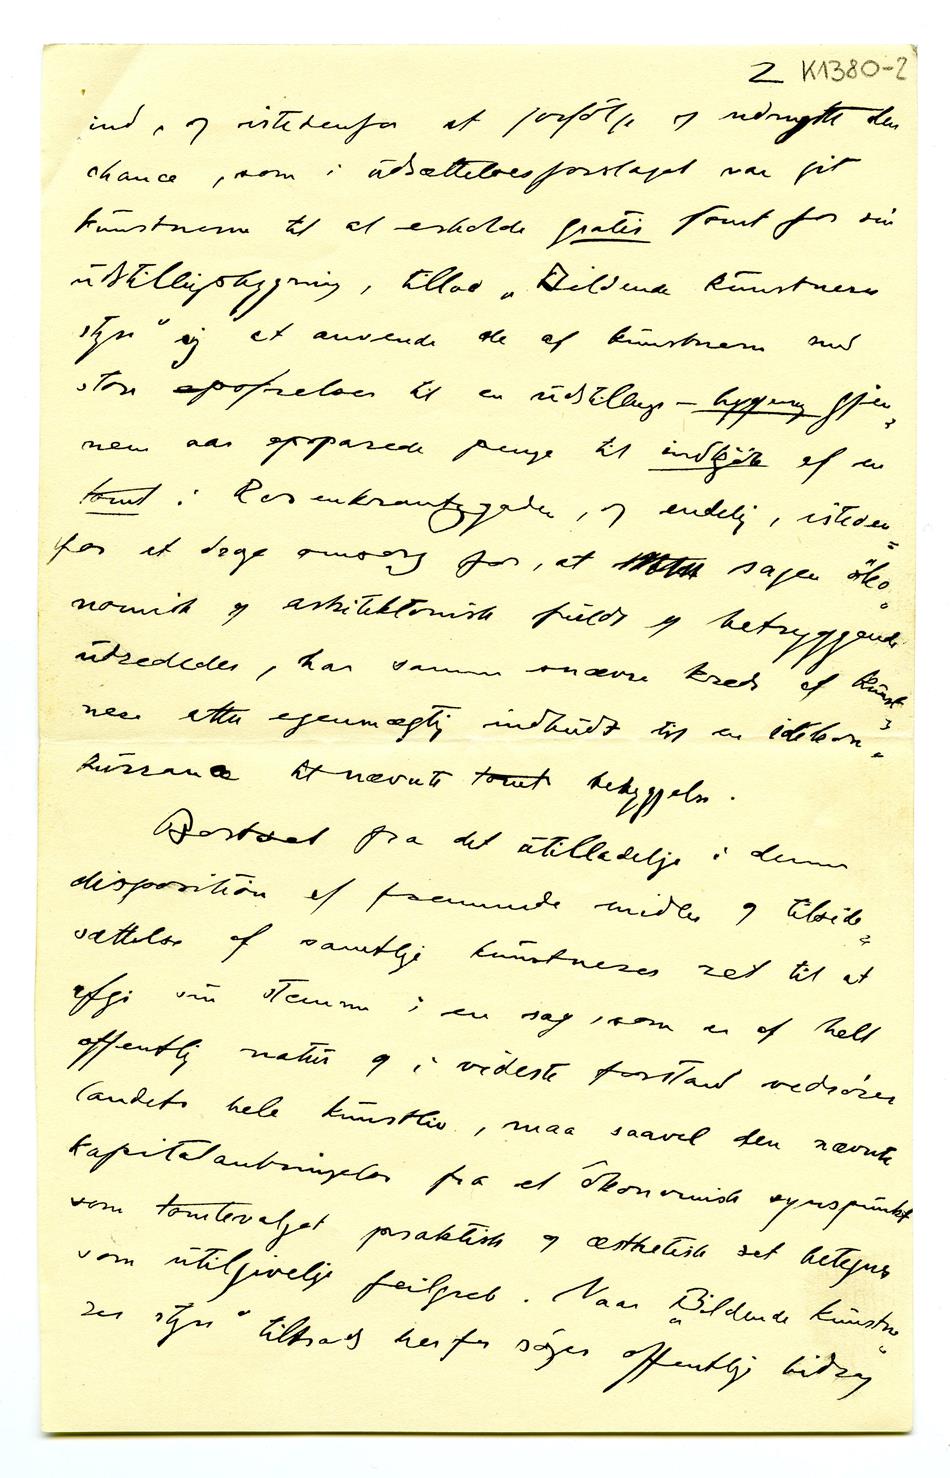 2 K1380-2
ind, og istedenfor at forfølge og udnytte den
chance, som i udsættelsesforslaget var git
künstnerne til at erholde gratis tomt for sin
üdstillingsbygning, tillod „Bildende künstneres
styre" sig at anvende de af künstnerne med
stor opofrelse til en üdstillings-bygning gjen-
nem aar opsparede penge til indkjøb af en
tomt i Rosenkrantzgaden, og endelig, isteden-
for at drage omsorg for, at sagen øko-
nomisk og arkitektonisk füldt og betryggende
üdrededes, har samme snævre kreds af künst-
nere atter egenmægtig indbüdt til en idékon-
kürranse til nævnte tomts bebyggelse.
Bortset fra det ütilladelige i denne
disposition af fremmede midler og tilside-
sættelse af samtlige künstneres ret til at
afgi sin stemme i en sag, som er af helt
offentlig natür og i videste forstand vedrører
landets hele künstliv, maa saavel den nævnte
kapitalanbringelse fra et økonomisk synspünkt
som tomtevalget praktisk og æsthetisk set betegnes
som ütilgivelige feilgreb. Naar „Bildende künstne-
res styre" tiltrods herfor søger offentlig bidrag